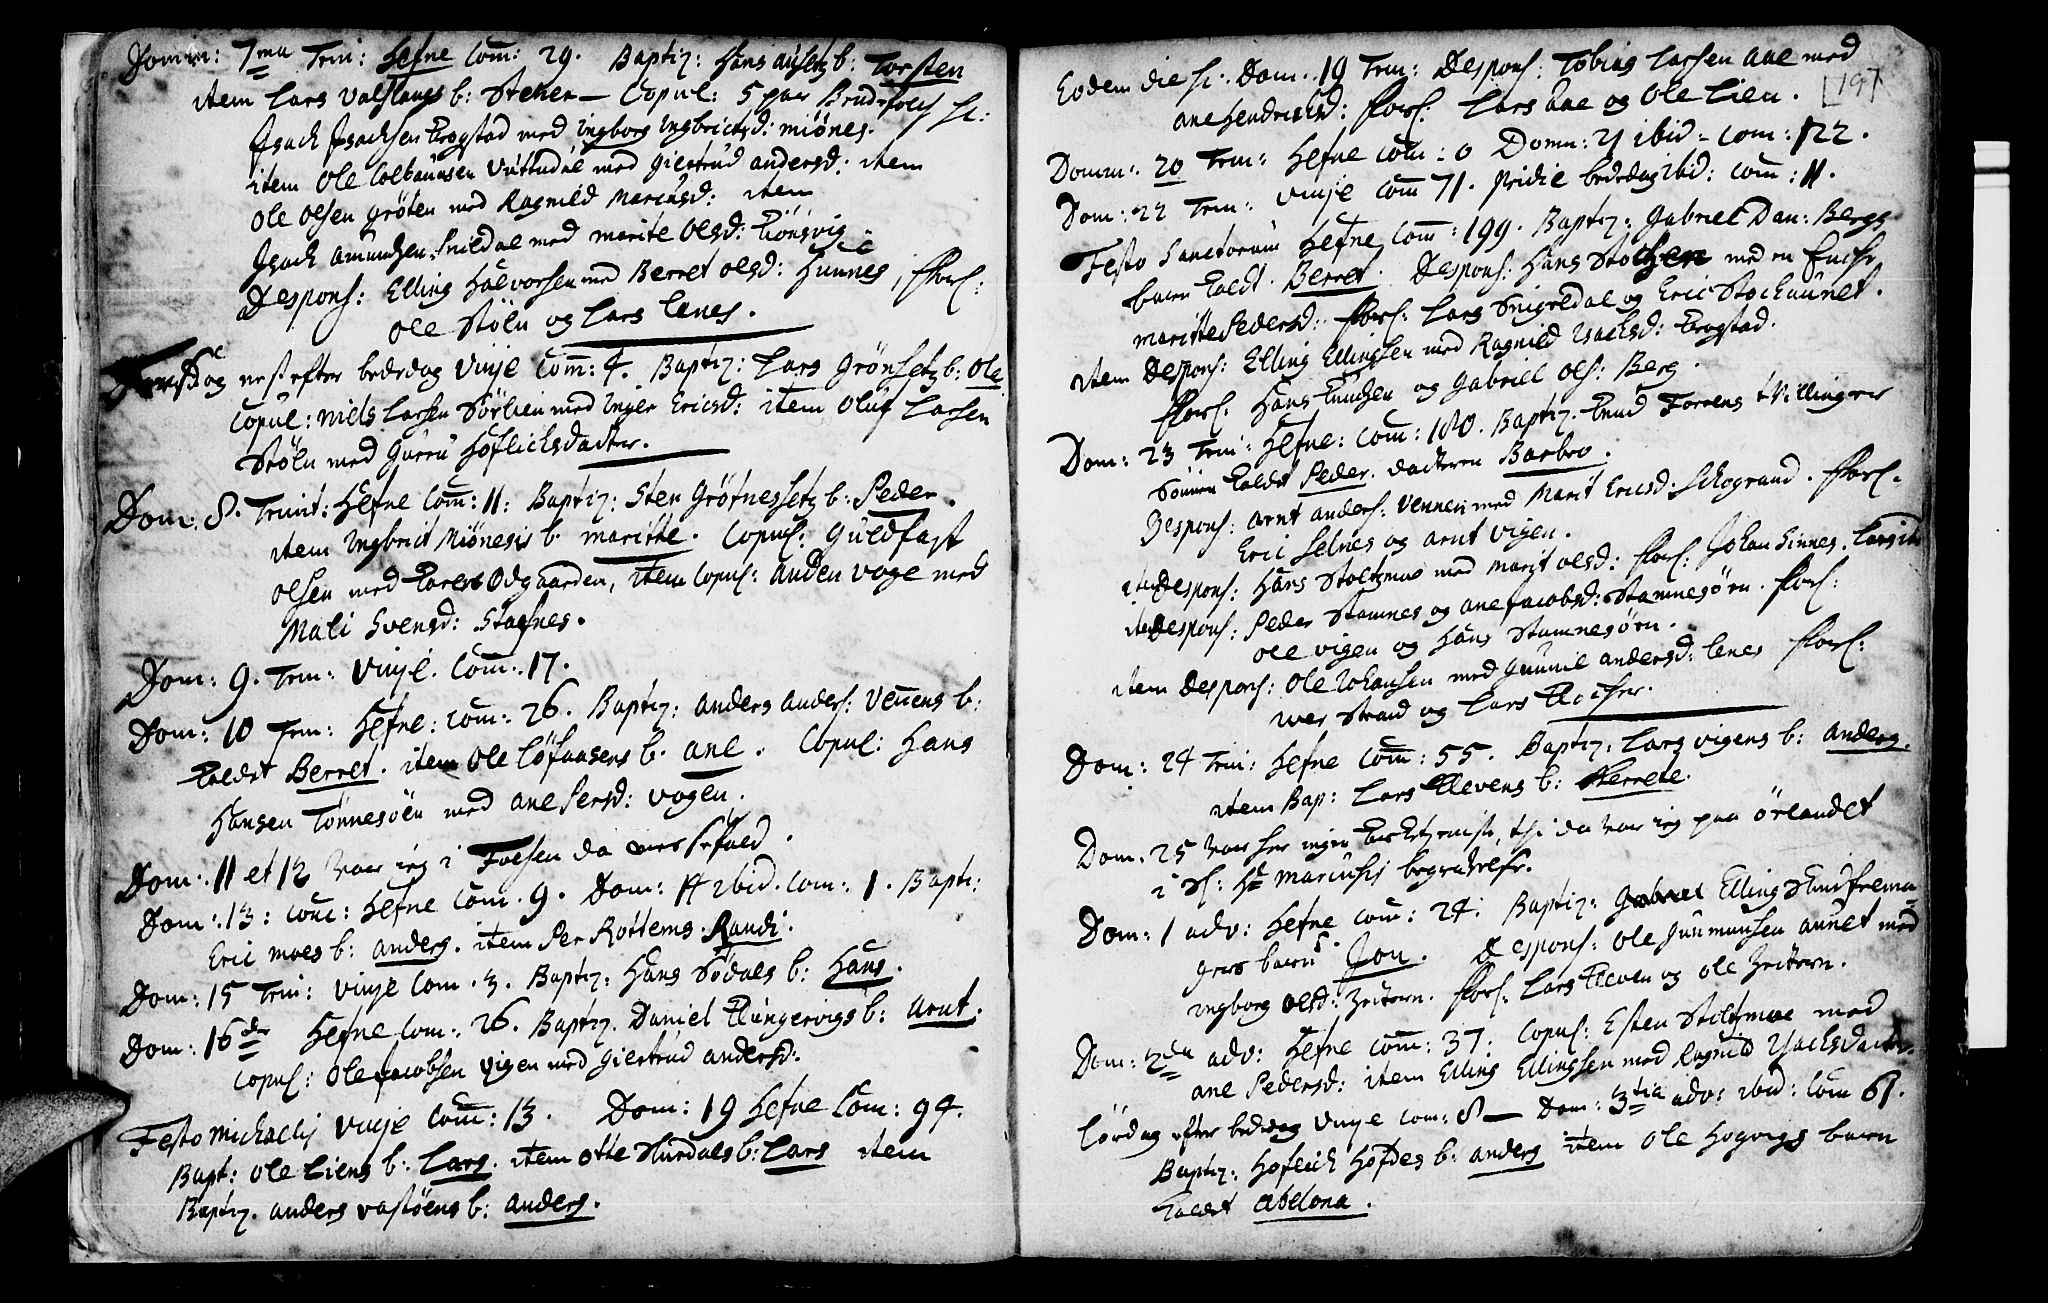 Domin: 7ma Trin: Hefne Com: 29. Baptiz: Hans ausetz b: Torsten
item Lars Valslaugs b: Stener — Copul: 5 par Brudefolch sc:
Isach Isachsen Krogstad med Ingborg Ingbrictsd: miönes.
item Ole Colbaunsen Vuttudal med Giertrud andersd: item
Ole Olsen gröten med Ragnild Marcusd: item
Isach amundsen Snildal med marite Olsd: Kongsvig
Despons: Elling Halvorsen med Berret olsd: Hunnes, flors:
Ole Stöln og Lars Lenes.
Torsdag nest efter bededag Vinje Com: 4. Baptiz: Lars Grönsetz b: Ole
Copul: Niels Larsen Sörlien med Inger Ericsd: item Oluf Larsen
Stöln med Gurru Hoflichsdatter.
Dom: 8. Trinit: Hefne Com: 11: Baptiz: Sten Grötnessetz b: Peder.
item Ingbrict Miönesis b. maritte. Copul: Guldfast
olsen med Karen Odgaarden, item Copul: anden vage med
Mali Svensd: Stafnes.
Dom: 9. Trin: Vinje. Com: 17.
Dom: 10 Trin: Hefne: Com: 26. Baptiz: anders anders: Vennens b:
Kaldet Berret. item Ole Löfaasens b. ane. Copul: Hans
Hansen Tönnesöen med ane Persd: vagen.
Dom: 11 et 12 Var ieg i Fosen da
Dom: 13: com: Hefne Com. 9. Dom: 14 ibid. Com: 1. Bapti:
Eric moes b: anders. item Per Röttems. Randi.
Dom: 15 Trin: Vinje Com. 3. Baptiz: Hans Södals b: Hans.
Dom: 16de Hefne Com: 26. Baptiz. Daniel Klungervigs b: Arnt.
Copul: Ole Jacobsen vigen med giertrud andersd:
Festo Michaelis Vinje Com: 13. Dom: 19 Hefne Com: 94.
Bapt: Ole Liens b: Lars. item otte Sturdals b: Lars item
Baptiz. anders vastöens b: anders.
Eodem die sc: Dom. 19 Trin: Despons: Tobias Larsen Aae med
ane Hendrichsd: flors. Lars Aae og Ole Lien.
197
Domin: 20 Trin: Hefne Com: 0 Domn: 21 ibid - Com: 122.
Dom: 22 Trin: Vinje Com 71. Pridie bededag ibid: Com: 11.
Festo Sanctorum Hefne Com: 199. Baptiz: Gabriel Dan: Bergs
barn Kaldt Berret. Despons: Hans med en Enche
maritte Pedersd: flors: Lars Snigeldal og Eric Stochaunet.
item Despons: Elling Ellingsen med Ragnild Isachsd: Krogstad.
flors. Hans Knudsen og Gabriel Ols: Berg.
Dom: 23 Trin: Hefne: Com: 180. Baptiz. Knud Forrens tvillinger
Sönnen Kaldet Peder. datteren Barbro.
Despons: Arnt anders: Vennen med Marit Ericsd: Schogrand. flors.
Eric Selnes og Arnt Vigen.
item Despons: Hans Stoltzmoe med Marit Olsd: flors: Johan Sinnes. Lars
item Despons: Peder Stamnes og ane Jacobsd: Stamnesörn. flors:
Ole vigen og Hans Stamnesörn.
item Despons: Ole Johansen med Gunnil andersd: Lenes flors:
Strand og Lars
Dom: 24 Trin: Hefne Com: 55. Baptiz: Lars vigens b: anders.
item Bap: Lars Klevens b:
Dom: 25 Var her ingen Kircketzeniste, thi da Var ieg paa Örlandet
i Sl: Hr Marcussis begravelse.
Dom: 1 adv: Hefne Com: 24: Baptiz: Elling
barn Jon. Despons: Ole Gunmunsen aunet med
ingborg Olsd: flors. Lars Kleven og Ole
Dom: 2da adv: Hefne Com: 37: Copul: Esten Stoltzmoe med
ane Pedersd: item Elling Ellingsen med Ragnild Isachsdatter.
Lördag efter bededag Vinje Com: 8 — Dom: 3tia adv: ibid: Com 61.
Baptiz: Hoflich Hofdes b: anders item Ole Hogvigs barn
Kaldet Abelona.